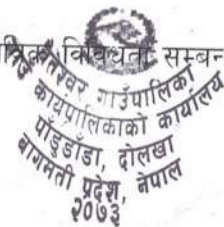 विविधता सम्बन
गाउँपालिका
कार्यपालिकाको कार्यालय
पाँडुडाँडा, दोलखा
बागमती प्रदेश, नेपाल
२०७३